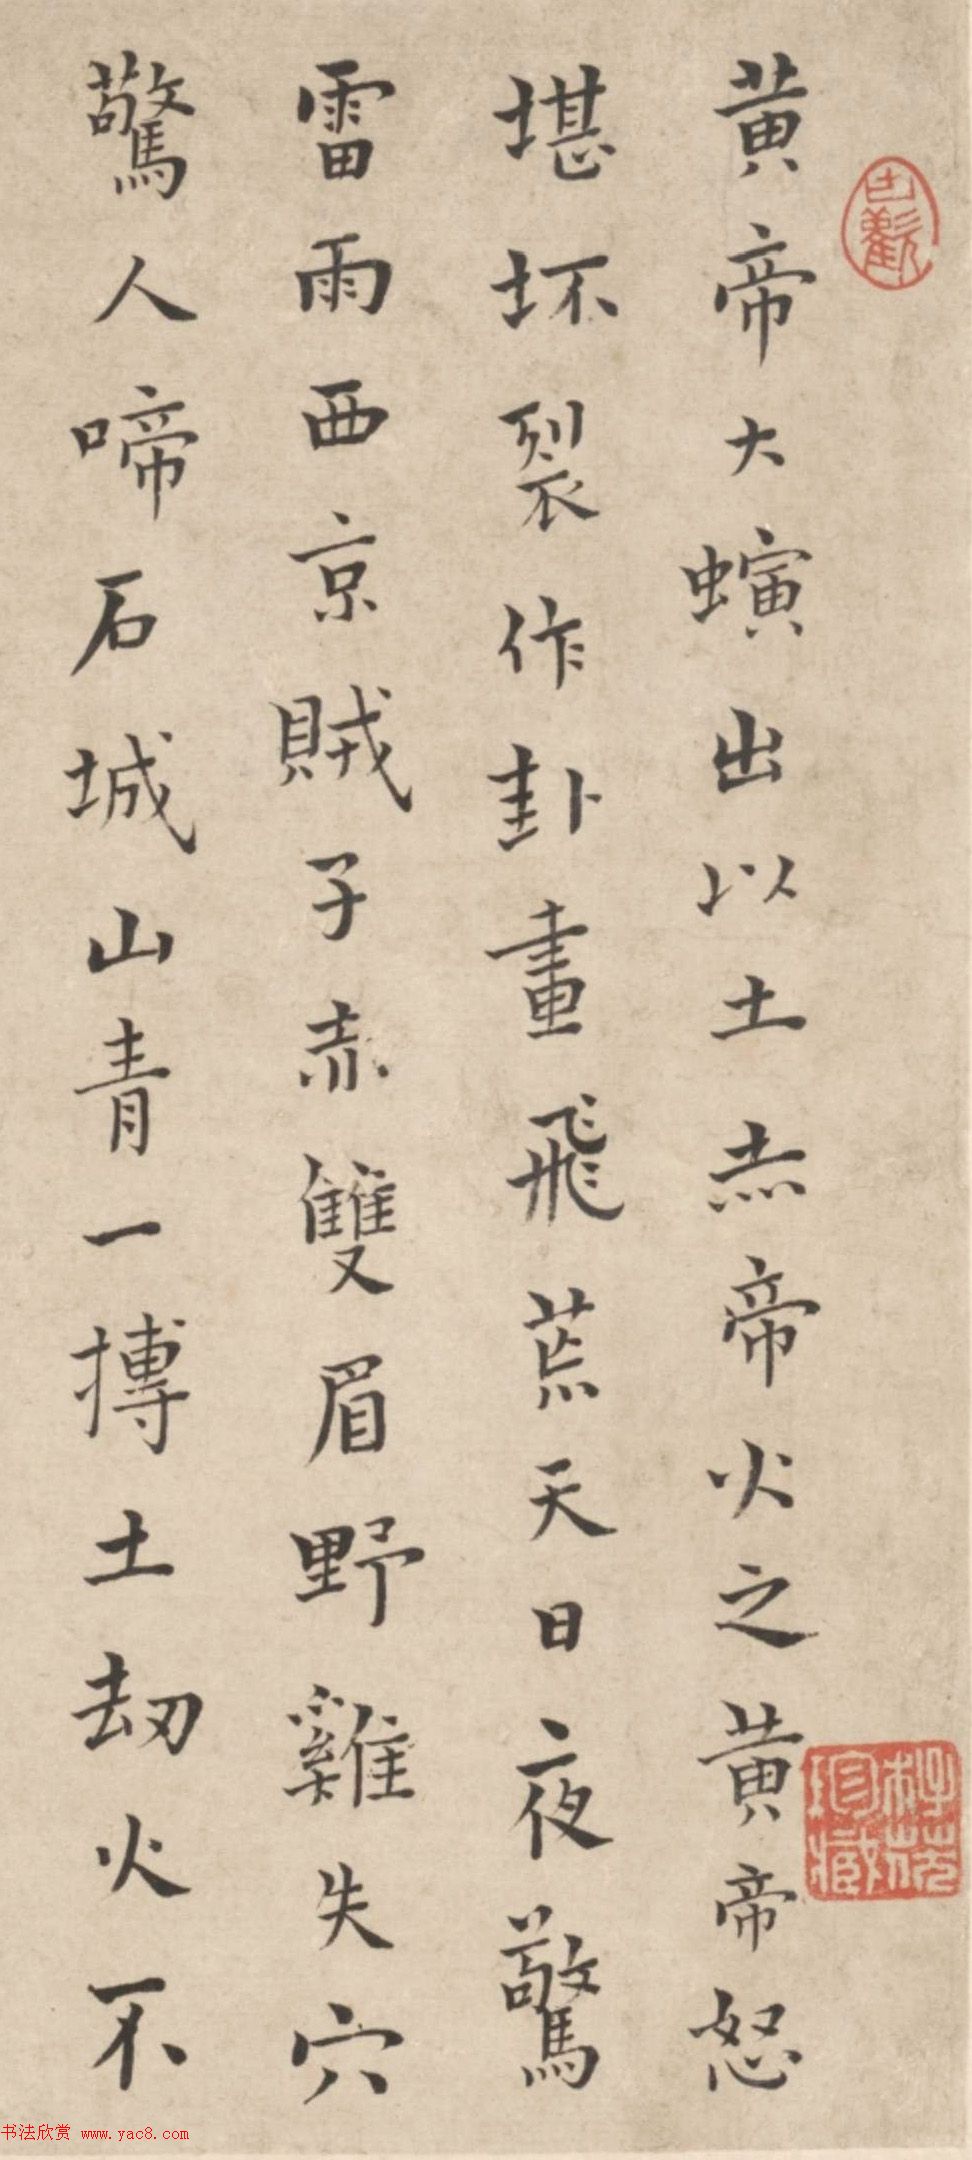 黄帝大螾出以土赤帝火之黄帝怒
堪坏裂作卦畫飛荒天日夜驚
雷雨西京賊子赤雙眉野雞失穴
驚人啼石城山青一摶土劫火不
书法欣赏 www.yac8.com